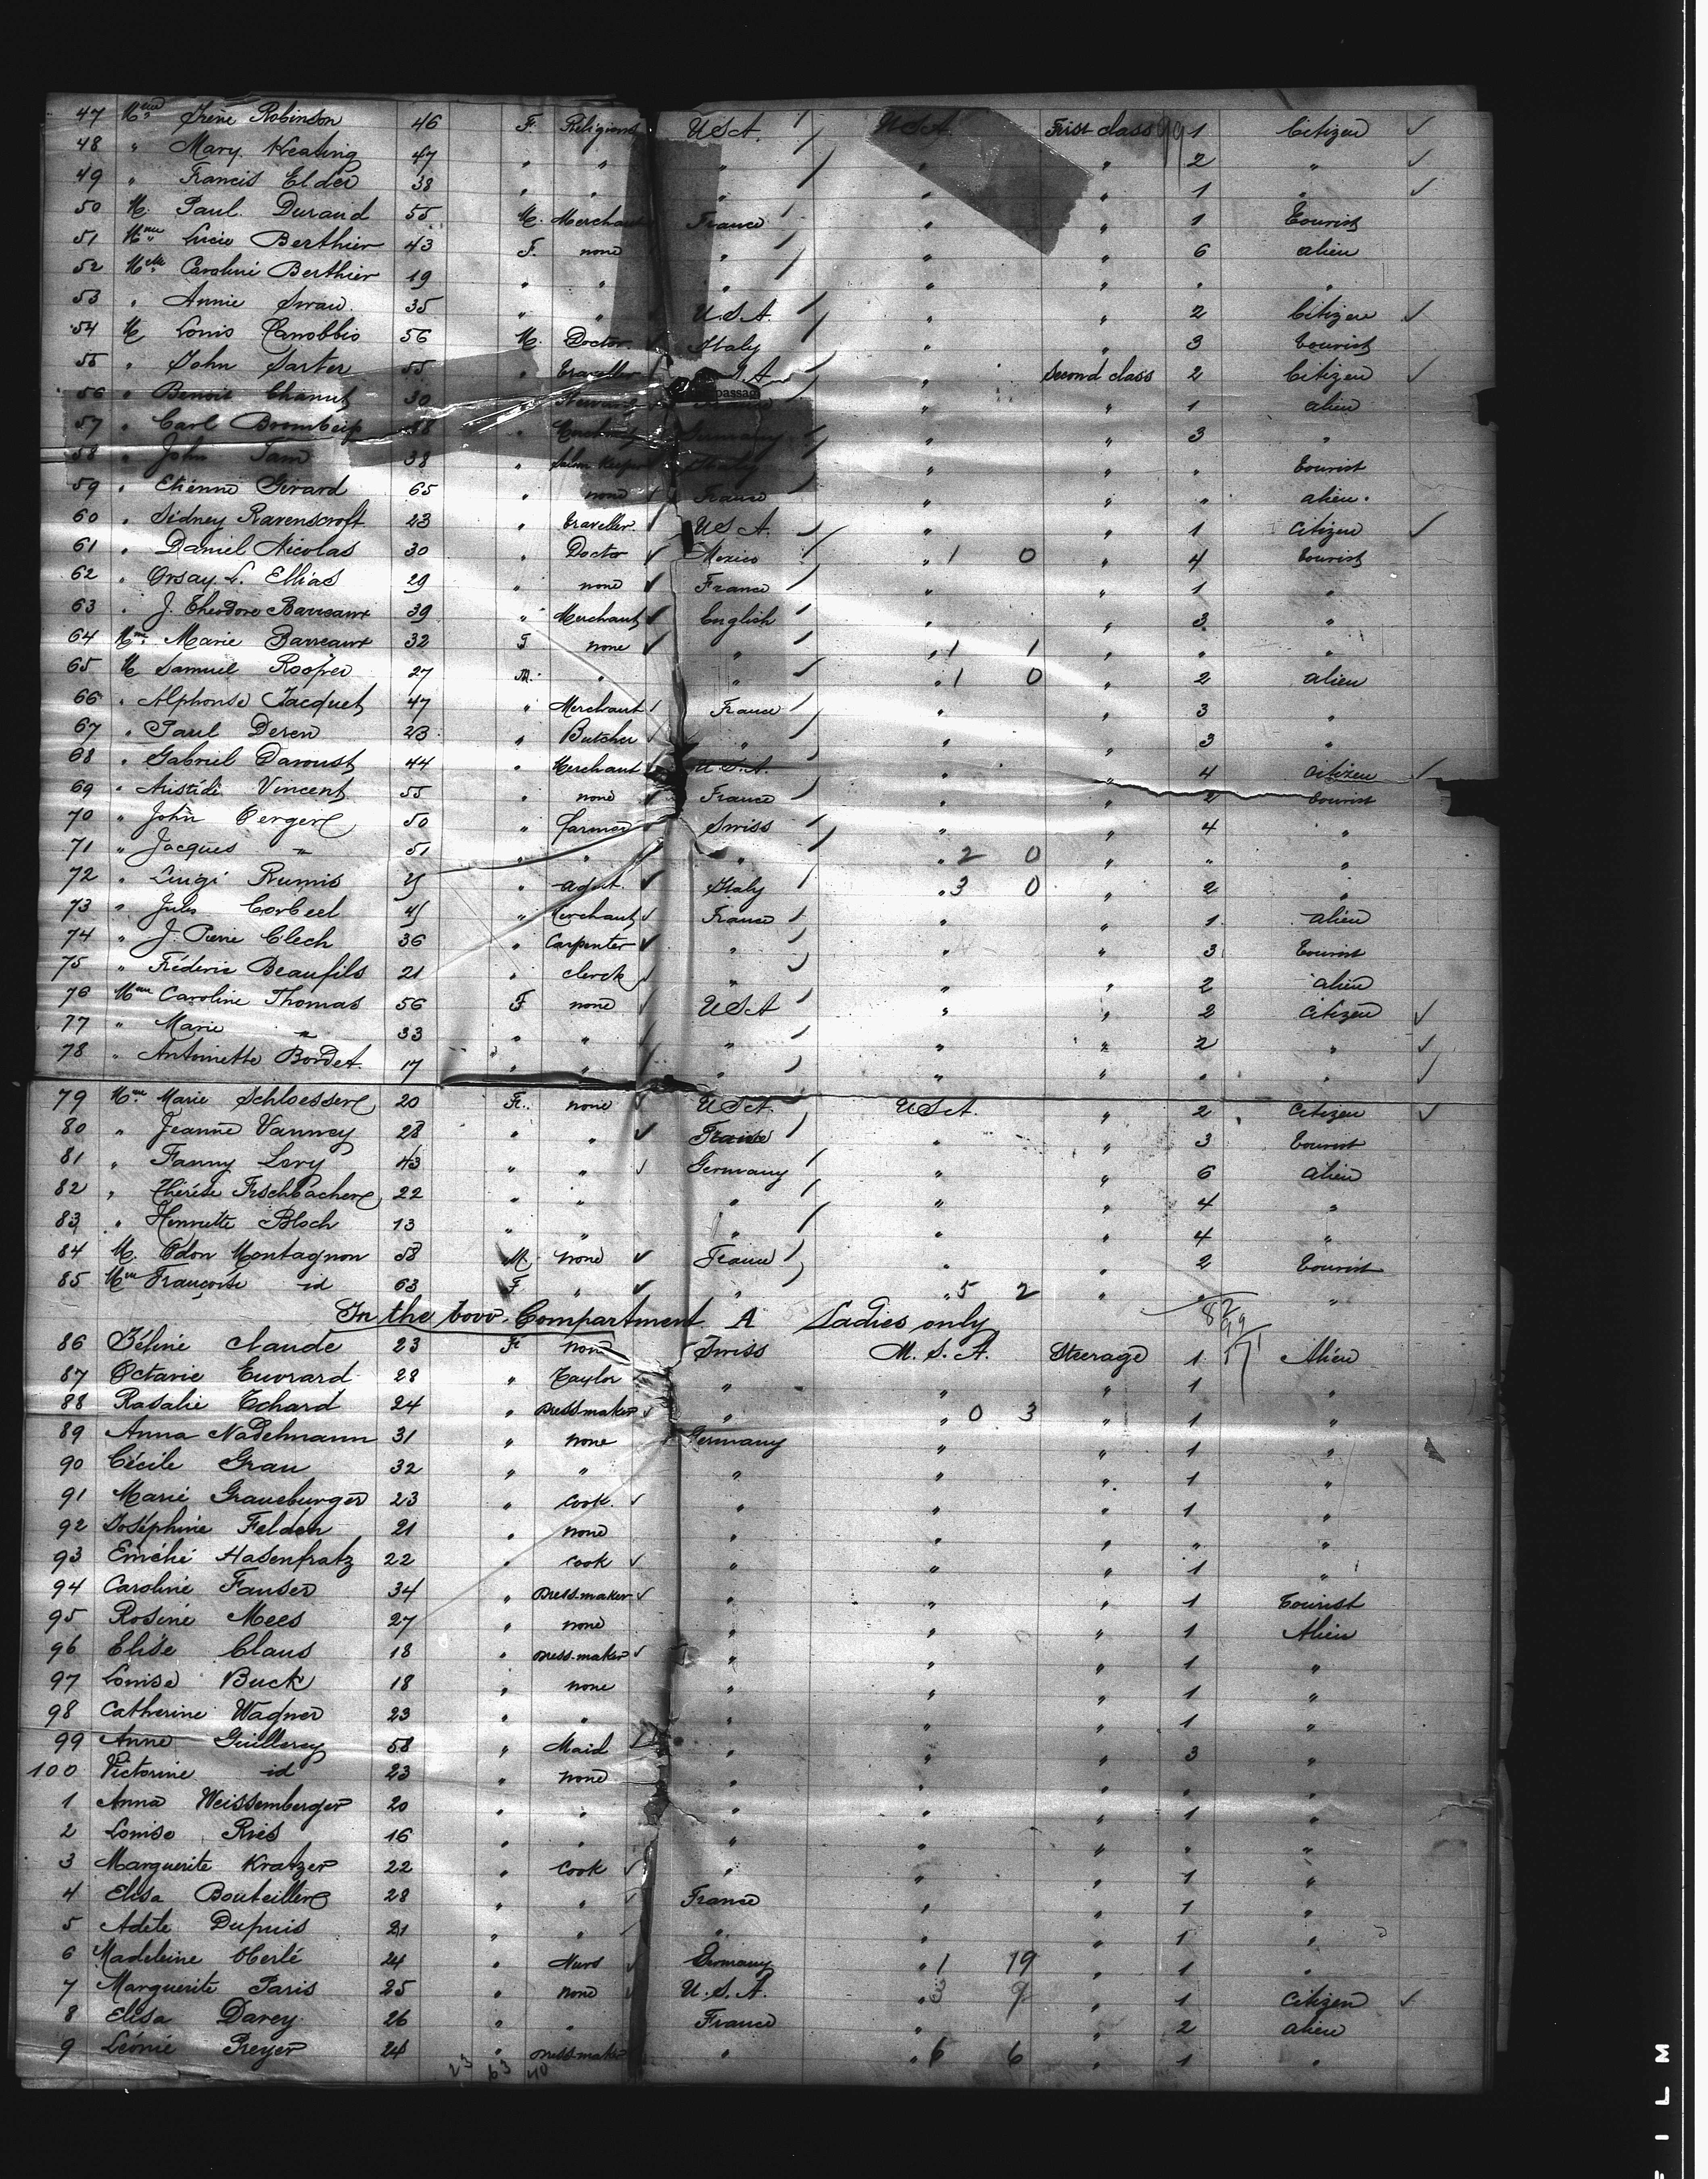 47 Mme Irène Robinson 46 F. Religious USA / USA First class 99 1 Citizen ✓
48 " Mary Keating 47 " " " / " " 2 " ✓
49 " Francis Elder 38 " " " " " 1 " ✓
50 M. Paul Durand 55 M. Merchant France / " " 1 Tourist
51 Mme Lucie Berthier 43 F. none " / " " 6 alien
52 Mlle Caroline Berthier 19 " " " " " " "
53 " Annie Swan 35 " " U.S.A. / " " 2 Citizen ✓
54 M Louis Canobbio 56 M. Doctor ✓ Italy / " " 3 Tourist
55 " John Sarter 55 " Traveller " Second class 2 Citizen ✓
56 " Benoit Chanut 30 " France " " 1 alien
57 " Carl " Germany / " " 3 "
58 " John 38 " Salon Keeper Italy " " " Tourist
59 " Etienne Girard 65 " none / France / " " " alien
60 " Sidney Ravenscroft 23 " traveller / USA. / " " 1 Citizen ✓
61 " Daniel Nicolas 30 " Doctor ✓ Mexico / " 1 0 " 4 Tourist
62 " Orsay. L. Ellias 29 " none ✓ France / " " 1 "
63 " J. Theodore Barreaux 39 " Merchant ✓ English / " " 3 "
64 Mme Marie Barreaux 32 F none ✓ " / " 1 1 " " "
65 M Samuel Rooper 27 M. " " / " 1 0 " 2 alien
66 " Alphonse Jacquet 47 " Merchant / France / " " 3 "
67 " Paul Deren 23 " Butcher ✓ " / " " 3 "
68 " Gabriel Davoust 44 " Merchant U.S.A. " " 4 Citizen ✓
69 " Aristide Vincent 55 " none ✓ France / " " 2 tourist
70 " John Berger 50 " farmer Swiss / " " 4 "
71 " Jacques " 51 " " / " " 2 0 " " "
72 " Luigi Rumis " agent ✓ Italy / " 3 0 " 2 "
73 " Jules Corbeel 45 " Merchant ✓ France / " " 1 alien
74 " J. Pierre Clech 36 " Carpenter ✓ " / " " 3 Tourist
75 " Fréderic Beaufils 21 " clerck ✓ " / " " 2 alien
76 Mme Caroline Thomas 56 F none ✓ USA / " " 2 Citizen ✓
77 " Marie " 33 " " / " / " " 2 " ✓
78 " Antoinette Bordet 17 " " / " / " " " " ✓
79 Mme Marie Schloesser 20 F. none ✓ USA. USA. " 2 Citizen ✓
80 " Jeanne Vanney 28 " " ✓ France / " " 3 Tourist
81 " Fanny Levy 43 " " ✓ Germany / " " 6 alien
82 " Thérèse Fischbacher 22 " " " / " " 4 "
83 " Henriette Bloch 13 " " " / " " 4 "
84 M. Odon Montagnon 58 M. none ✓ France / " " 2 Tourist
85 Mme Françoise id 63 F " ✓ " / " 5 2 " " "
In the tovo Compartment A Ladies only 82
86 Zéline Claude 23 F. none Swiss M. S. A. Steerage 1 171 Alien
87 Octavie Euvrard 28 " Taylor ✓ " " " 1 "
88 Rosalie Echard 24 " Dressmaker ✓ " " 0 3 " 1 "
89 Anna Nadelmann 31 " none Germany " " 1 "
90 Cécile Grau 32 " " " " " 1 "
91 Marie Graueburger 23 " Cook ✓ " " " 1 "
92 Joséphine Felden 21 " none " " " " "
93 Emélie Hasenfratz 22 " Cook ✓ " " " 1 "
94 Caroline Fauser 34 " Dressmaker ✓ " " " 1 Tourist
95 Rosine Mees 27 " none " " " 1 Alien
96 Elise Claus 18 " Dressmaker ✓ " " " 1 "
97 Louise Buck 18 " none " " " 1 "
98 Catherine Wagner 23 " " " " " 1 "
99 Anne Guillerey 58 " Maid ✓ " " " 3 "
100 Victorine id 23 " none " " " " "
1 Anna Weissemberger 20 " " " " " 1 "
2 Louise Ries 16 " " " " " " "
3 Marguerite Kratzer 22 " Cook ✓ " " " 1 "
4 Elisa Bouteiller 28 " " ✓ France " " 1 "
5 Adèle Dupuis 21 " " ✓ " " " 1 "
6 Madeleine Oberlé 24 " Nurs ✓ Germany " 1 19 " 1 "
7 Marguerite Paris 25 " none U.S.A. " 3 9 " 1 Citizen ✓
8 Elisa Darey 26 " " France " " 2 alien
9 Léonie Preyer 24 " Dressmaker " " 6 6 " 1 "
23 63 40
FILM